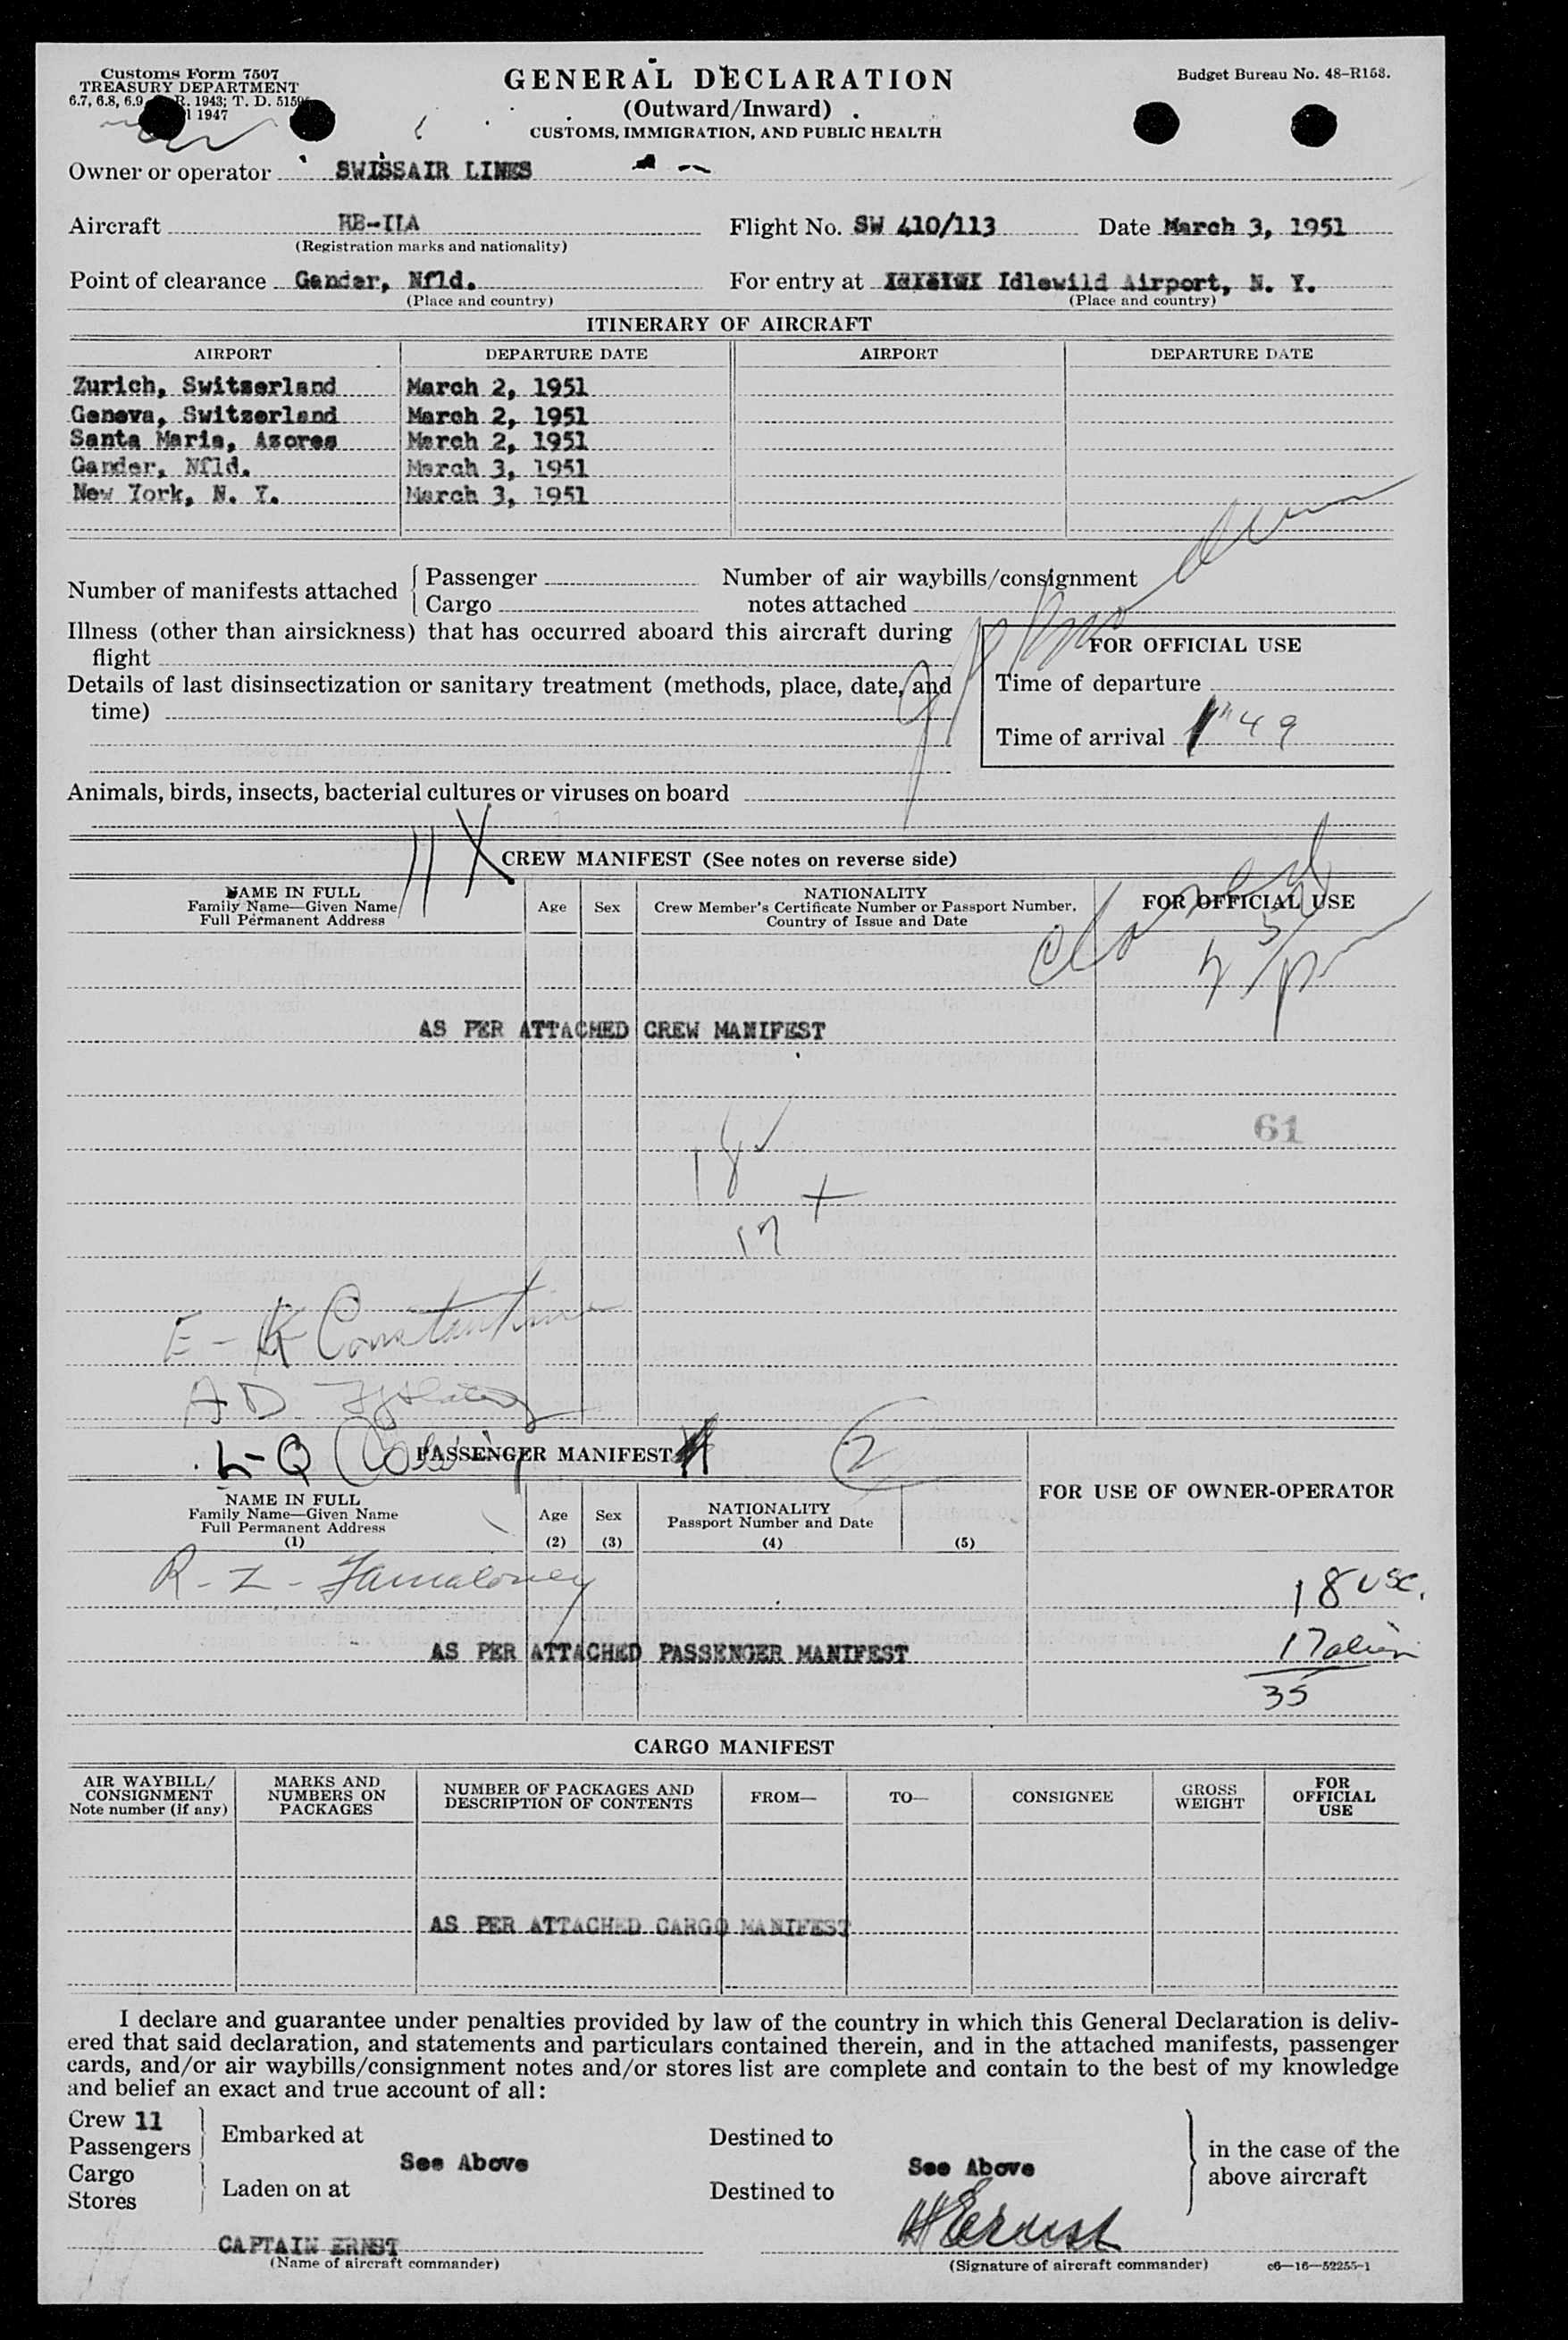 Customs Form 7507
TREASURY DEPARTMENT
6.7, 6.8, 6.9 R. 1943; T. D. 5159
1947
GENERAL DECLARATION
(Outward/Inward)
CUSTOMS, IMMIGRATION, AND PUBLIC HEALTH
Budget Bureau No. 48–R158.
Owner or operator SWISSAIR LINES
Aircraft HB-ILA
(Registration marks and nationality)
Flight No. SW 410/113
Date March 3, 1951
Point of clearance Gander, Nfld.
(Place and country)
For entry at Idlewild Airport, N. Y.
(Place and country)
ITINERARY OF AIRCRAFT
AIRPORT DEPARTURE DATE AIRPORT DEPARTURE DATE
Zurich, Switzerland March 2, 1951
Geneva, Switzerland March 2, 1951
Santa Maria, Azores March 2, 1951
Gander, Nfld. March 3, 1951
New York, N. Y. March 3, 1951
Number of manifests attached
Passenger
Cargo
Number of air waybills/consignment
notes attached
Illness (other than airsickness) that has occurred aboard this aircraft during
flight
Details of last disinsectization or sanitary treatment (methods, place, date, and
time)
FOR OFFICIAL USE
Time of departure
Time of arrival 49
Animals, birds, insects, bacterial cultures or viruses on board
11 X
CREW MANIFEST (See notes on reverse side)
NAME IN FULL
Family Name—Given Name
Full Permanent Address
Age
Sex
NATIONALITY
Crew Member's Certificate Number or Passport Number,
Country of Issue and Date
FOR OFFICIAL USE
AS PER ATTACHED CREW MANIFEST
61
18 ✓
17 +
E - K Constantine
A D
L-Q
PASSENGER MANIFEST
2
NAME IN FULL
Family Name—Given Name
Full Permanent Address
(1)
Age
(2)
Sex
(3)
NATIONALITY
Passport Number and Date
(4)
(5)
FOR USE OF OWNER-OPERATOR
R - Z -
18 USC.
17 alien
35
AS PER ATTACHED PASSENGER MANIFEST
CARGO MANIFEST
AIR WAYBILL/
CONSIGNMENT
Note number (if any)
MARKS AND
NUMBERS ON
PACKAGES
NUMBER OF PACKAGES AND
DESCRIPTION OF CONTENTS
FROM—
TO—
CONSIGNEE
GROSS
WEIGHT
FOR
OFFICIAL
USE
AS PER ATTACHED CARGO MANIFEST
I declare and guarantee under penalties provided by law of the country in which this General Declaration is deliv-
ered that said declaration, and statements and particulars contained therein, and in the attached manifests, passenger
cards, and/or air waybills/consignment notes and/or stores list are complete and contain to the best of my knowledge
and belief an exact and true account of all:
Crew 11
Passengers
Cargo
Stores
Embarked at
See Above
Laden on at
Destined to
See Above
Destined to
in the case of the
above aircraft
CAPTAIN ERNST
(Name of aircraft commander)
H Ernst
(Signature of aircraft commander)
c6—16—52255-1